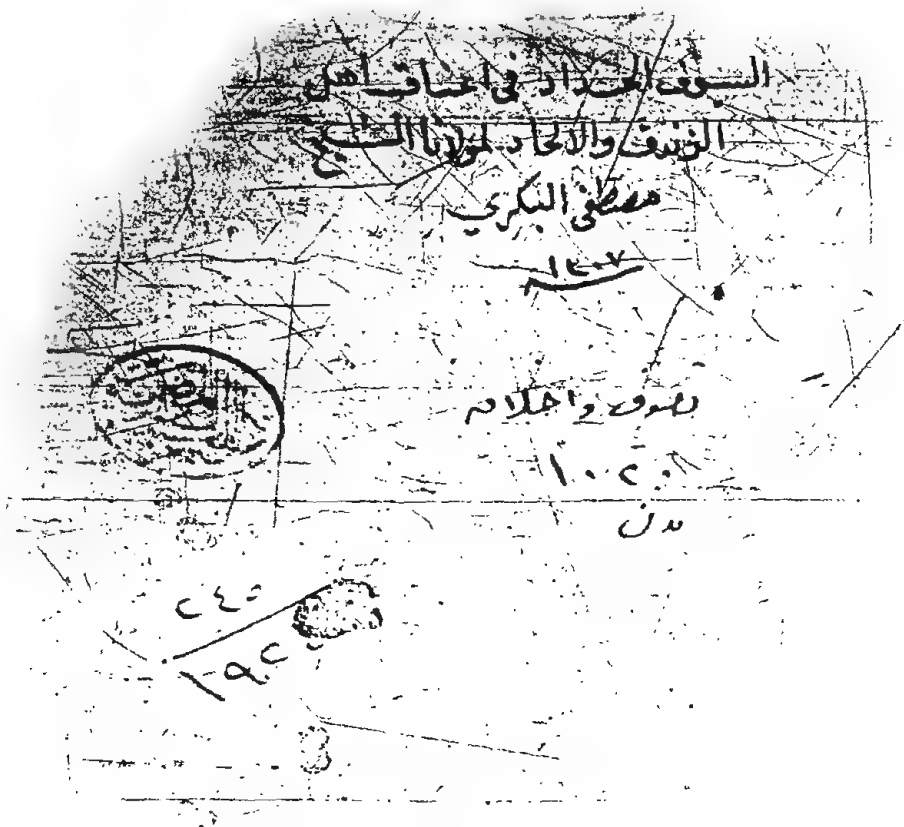 السيوف الحداد في اعناق اهل
الزندقة والالحاد لمولانا الشيخ
مصطفى البكري
١٢٠٧
تصوف واخلاق
١٠٢٠
٢٤٥
١٩٢